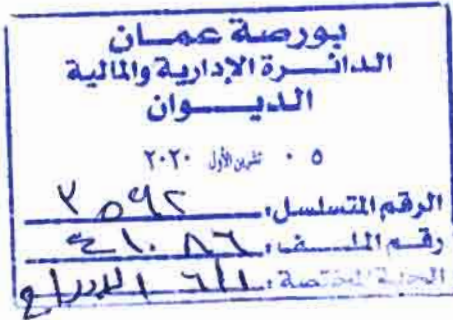 بورصة عمان
الدائرة الإدارية والمالية
الديوان
٠٥ تشرين الأول ٢٠٢٠
الرقم المتسلسل: ٣٥٩٢
رقم الملف: ٤١٠٨٦
الجهة المختصة: ٦/١ الإدراج